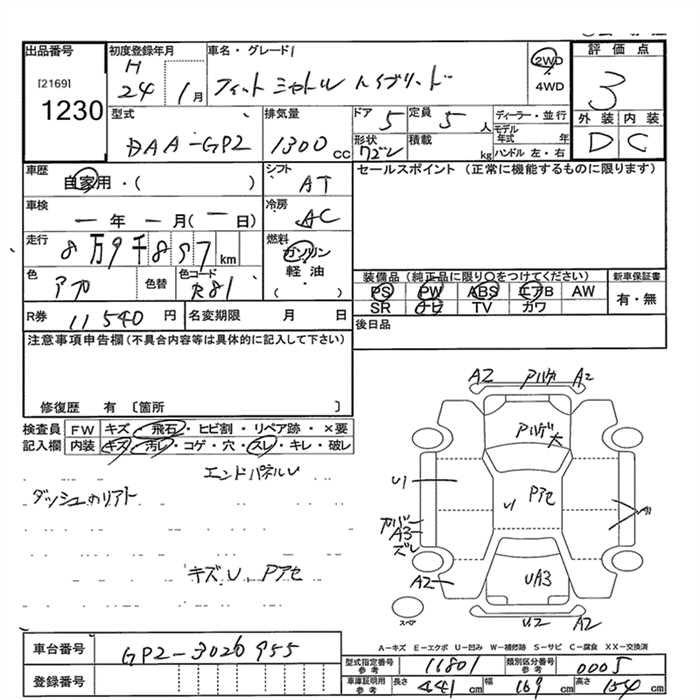 出品番号
[2169]
1230
初度登録年月
H
24 1月
車名・グレード
フィットシャトル ハイブリッド
2WD
4WD
評価点
3
外装 内装
D C
型式
DAA-GP2
排気量
1300 CC
ドア
5
定員
5 人
形状
ワゴン
積載
kg
ディーラー・並行
モデル年式 年
ハンドル 左・右
車歴
自家用・( )
シフト
AT
車検
ー年ー月(ー日)
冷房
AC
走行
8万9千897km
燃料
ガソリン
軽油
( ・ )
色
アカ
色替
色コード
R81
R券 11540円
名変期限 月 日
セールスポイント(正常に機能するものに限ります)
装備品(純正品に限り○をつけてください)
PS PW ABS エアB AW
SR ナビ TV カワ
新車保証書
有・無
後日品
注意事項申告欄(不具合内容等は具体的に記入して下さい)
修復歴 有〔箇所 〕
検査員記入欄
FW キズ・飛石・ヒビ割・リペア跡・×要
内装 キズ・汚レ・コゲ・穴・スレ・キレ・破レ
エンドパネルU
ダッシュ
キズU、Pアセ
A2 A2
大
U1
U1
Pアセ
カバー
A3
ズレ
A2
UA3
U2 A2
スペア
A-キズ E-エクボ U-凹み W-補修跡 S-サビ C-腐食 XX-交換済
車台番号
GP2-3026955
登録番号
型式指定番号参考 11801
類別区分番号参考 0005
車庫証明用参考 長さ 441cm 幅 169cm 高さ 154cm